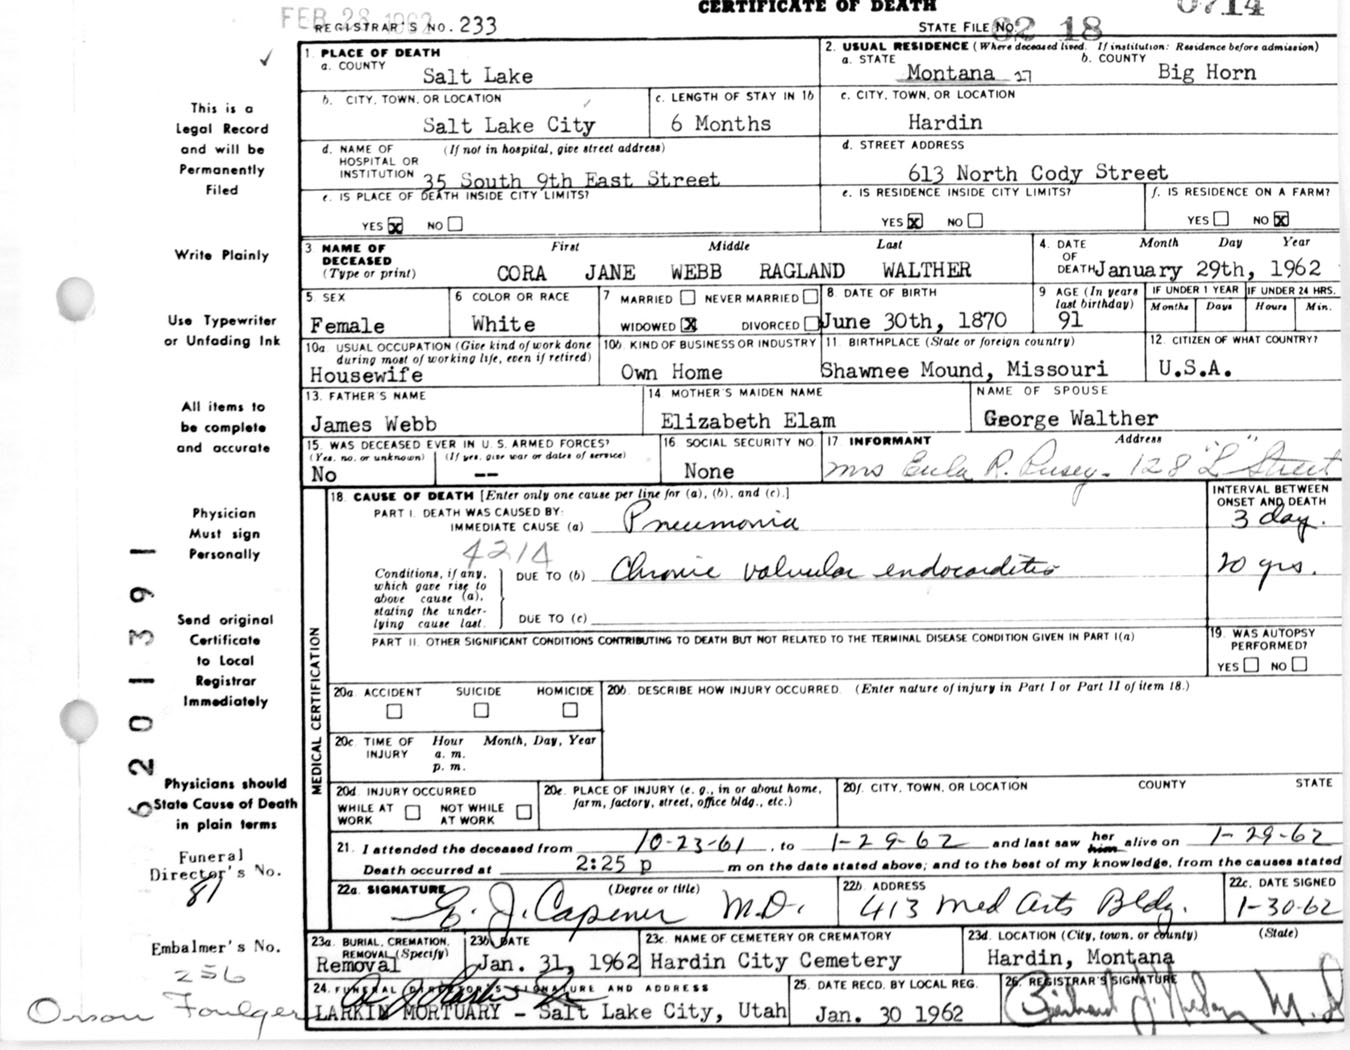 CERTIFICATE OF DEATH
0714
FEB 28 1962
REGISTRAR'S NO. 233
STATE FILE No. 62 18
1. PLACE OF DEATH
a. COUNTY
Salt Lake
2. USUAL RESIDENCE (Where deceased lived. If institution: Residence before admission)
a. STATE
Montana 27
b. COUNTY
Big Horn
b. CITY, TOWN, OR LOCATION
Salt Lake City
c. LENGTH OF STAY IN 1b
6 Months
c. CITY, TOWN, OR LOCATION
Hardin
d. NAME OF HOSPITAL OR INSTITUTION
(If not in hospital, give street address)
35 South 9th East Street
d. STREET ADDRESS
613 North Cody Street
e. IS PLACE OF DEATH INSIDE CITY LIMITS?
YES X NO
e. IS RESIDENCE INSIDE CITY LIMITS?
YES X NO
f. IS RESIDENCE ON A FARM?
YES NO X
This is a
Legal Record
and will be
Permanently
Filed
Write Plainly
Use Typewriter
or Unfading Ink
All items to
be complete
and accurate
Physician
Must sign
Personally
Send original
Certificate
to Local
Registrar
Immediately
Physicians should
State Cause of Death
in plain terms
Funeral
Director's No.
81
Embalmer's No.
256
Orson Foulger
6201391
3 NAME OF DECEASED
(Type or print)
First Middle Last
CORA JANE WEBB RAGLAND WALTHER
4. DATE OF DEATH
Month Day Year
January 29th, 1962
5 SEX
Female
6 COLOR OR RACE
White
7 MARRIED NEVER MARRIED
WIDOWED X DIVORCED
8 DATE OF BIRTH
June 30th, 1870
9 AGE (In years last birthday)
91
IF UNDER 1 YEAR
Months Days
IF UNDER 24 HRS.
Hours Min.
10a. USUAL OCCUPATION (Give kind of work done during most of working life, even if retired)
Housewife
10b. KIND OF BUSINESS OR INDUSTRY
Own Home
11. BIRTHPLACE (State or foreign country)
Shawnee Mound, Missouri
12. CITIZEN OF WHAT COUNTRY?
U.S.A.
13. FATHER'S NAME
James Webb
14 MOTHER'S MAIDEN NAME
Elizabeth Elam
NAME OF SPOUSE
George Walther
15. WAS DECEASED EVER IN U. S. ARMED FORCES?
(Yes, no, or unknown) (If yes, give war or dates of service)
No --
16 SOCIAL SECURITY NO
None
17 INFORMANT Address
Mrs Eula R. Pusey - 128 "L" Street
MEDICAL CERTIFICATION
18. CAUSE OF DEATH [Enter only one cause per line for (a), (b), and (c).]
INTERVAL BETWEEN ONSET AND DEATH
PART I. DEATH WAS CAUSED BY:
IMMEDIATE CAUSE (a) Pneumonia 3 day.
4214
Conditions, if any, which gave rise to above cause (a), stating the underlying cause last.
DUE TO (b) Chronic valvular endocarditis 20 yrs.
DUE TO (c)
PART II. OTHER SIGNIFICANT CONDITIONS CONTRIBUTING TO DEATH BUT NOT RELATED TO THE TERMINAL DISEASE CONDITION GIVEN IN PART I(a)
19. WAS AUTOPSY PERFORMED?
YES NO
20a. ACCIDENT SUICIDE HOMICIDE
20b. DESCRIBE HOW INJURY OCCURRED. (Enter nature of injury in Part I or Part II of item 18.)
20c. TIME OF INJURY
Hour Month, Day, Year
a. m.
p. m.
20d. INJURY OCCURRED
WHILE AT WORK NOT WHILE AT WORK
20e. PLACE OF INJURY (e. g., in or about home, farm, factory, street, office bldg., etc.)
20f. CITY, TOWN, OR LOCATION COUNTY STATE
21. I attended the deceased from 10-23-61, to 1-29-62 and last saw her him alive on 1-29-62
Death occurred at 2:25 p m on the date stated above; and to the best of my knowledge, from the causes stated
22a. SIGNATURE (Degree or title)
E. J. Capener M.D.
22b. ADDRESS
413 Med Arts Bldg.
22c. DATE SIGNED
1-30-62
23a. BURIAL, CREMATION, REMOVAL (Specify)
Removal
23b. DATE
Jan. 31, 1962
23c. NAME OF CEMETERY OR CREMATORY
Hardin City Cemetery
23d. LOCATION (City, town, or county) (State)
Hardin, Montana
24. FUNERAL DIRECTOR'S SIGNATURE AND ADDRESS
LARKIN MORTUARY - Salt Lake City, Utah
25. DATE RECD. BY LOCAL REG.
Jan. 30 1962
26. REGISTRAR'S SIGNATURE